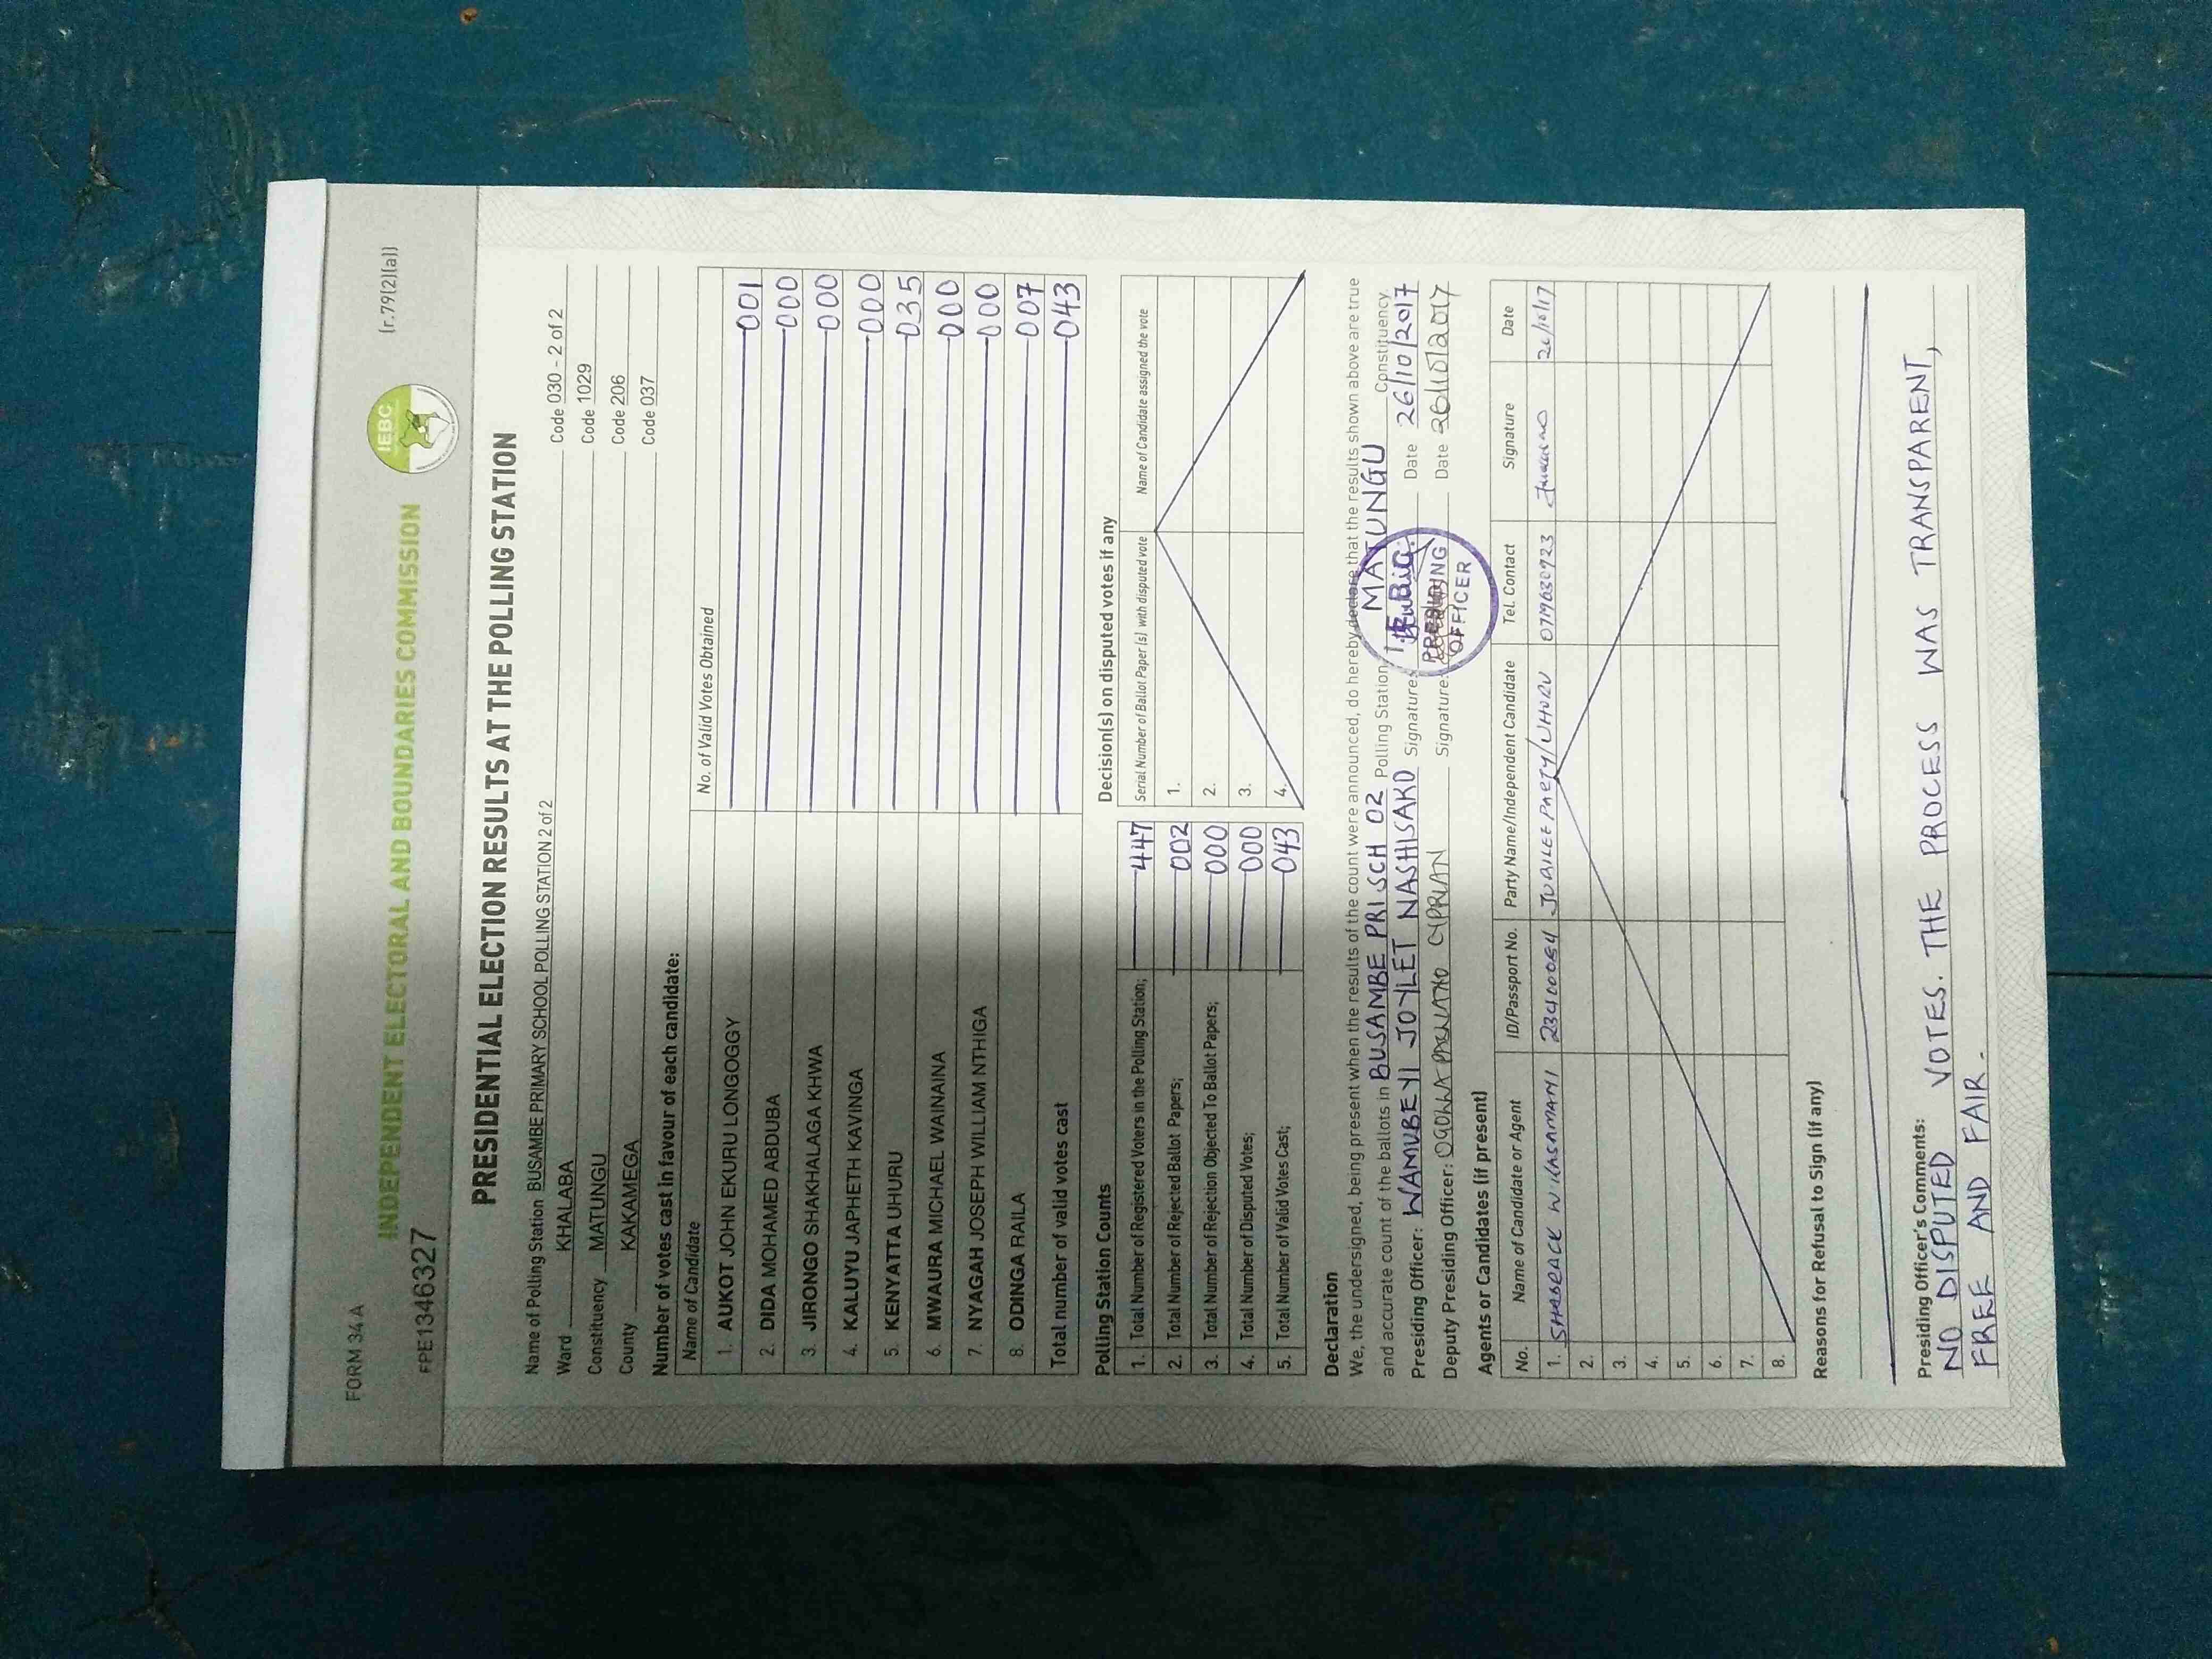 FORM 34A (r.79(2)(a))
INDEPENDENT ELECTORAL AND BOUNDARIES COMMISSION
IEBC
FPE1346327
PRESIDENTIAL ELECTION RESULTS AT THE POLLING STATION
Name of Polling Station BUSAMBE PRIMARY SCHOOL POLLING STATION 2 of 2 Code 030 - 2 of 2
Ward KHALABA Code 1029
Constituency MATUNGU Code 206
County KAKAMEGA Code 037
Number of votes cast in favour of each candidate:
Name of Candidate No. of Valid Votes Obtained
1. AUKOT JOHN EKURU LONGOGGY 001
2. DIDA MOHAMED ABDUBA 000
3. JIRONGO SHAKHALAGA KHWA 000
4. KALUYU JAPHETH KAVINGA 000
5. KENYATTA UHURU 035
6. MWAURA MICHAEL WAINAINA 000
7. NYAGAH JOSEPH WILLIAM NTHIGA 000
8. ODINGA RAILA 007
Total number of valid votes cast 043
Polling Station Counts
1. Total Number of Registered Voters in the Polling Station; 447
2. Total Number of Rejected Ballot Papers; 002
3. Total Number of Rejection Objected To Ballot Papers; 000
4. Total Number of Disputed Votes; 000
5. Total Number of Valid Votes Cast; 043
Decision(s) on disputed votes if any
Serial Number of Ballot Paper (s) with disputed vote Name of Candidate assigned the vote
1.
2.
3.
4.
Declaration
We, the undersigned, being present when the results of the count were announced, do hereby declare that the results shown above are true
and accurate count of the ballots in BUSAMBE PRI SCH 02 Polling Station MATUNGU Constituency
Presiding Officer: WAMUBEYI JOYLET NASHISAKO Signature: Date 26/10/2017
Deputy Presiding Officer: OGOLLA CYPRIAN Signature: Date 26/10/2017
PRESIDING
OFFICER
Agents or Candidates (if present)
No. Name of Candidate or Agent ID/Passport No. Party Name/Independent Candidate Tel. Contact Signature Date
1. SHADRACK JUBILEE PARTY/UHURU 26/10/17
2.
3.
4.
5.
6.
7.
8.
Reasons for Refusal to Sign (if any)
Presiding Officer's Comments:
NO DISPUTED VOTES. THE PROCESS WAS TRANSPARENT,
FREE AND FAIR.